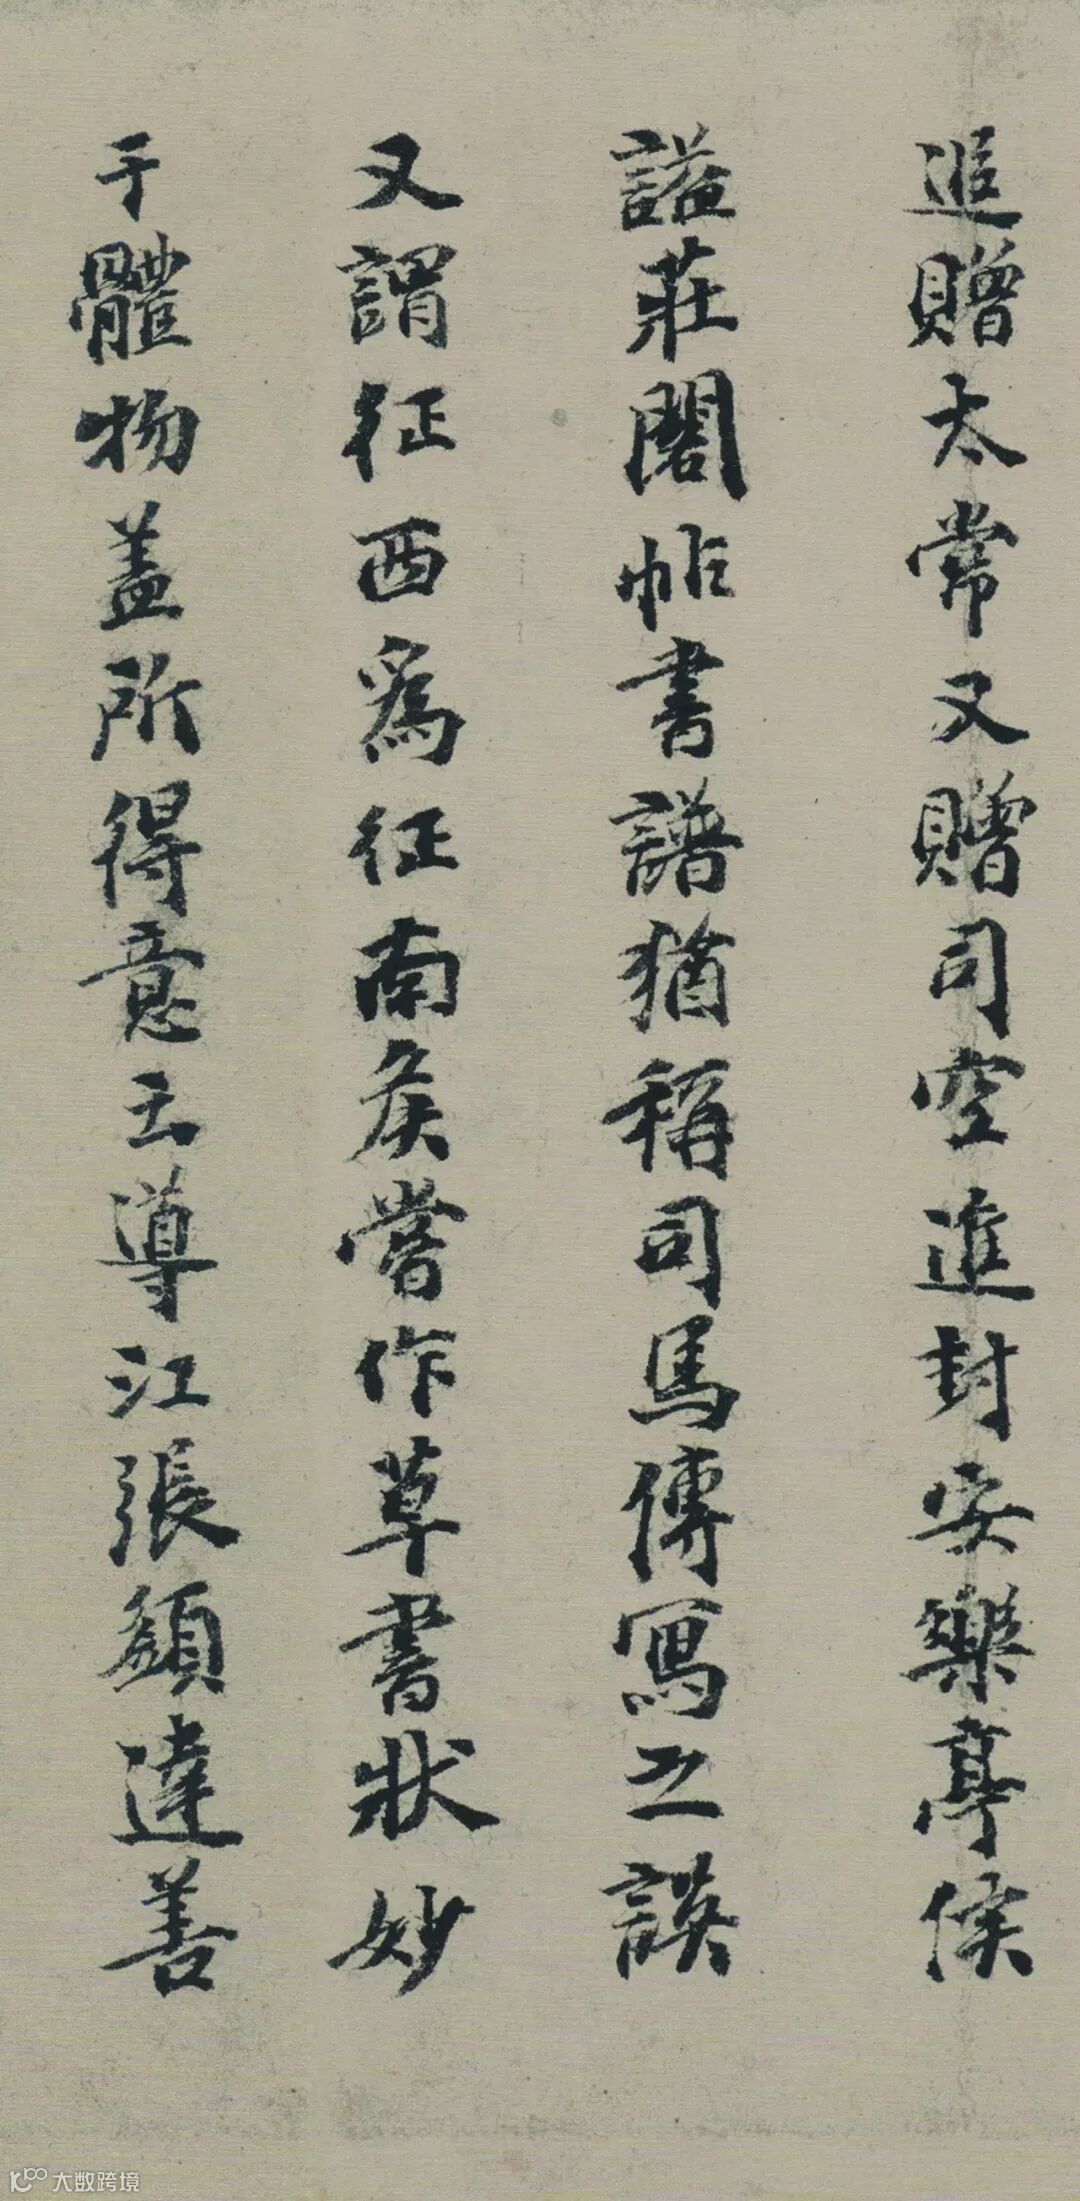 追贈太常又贈司空進封安樂亭侯
諡莊閣帖書譜猶稱司馬傳寫之誤
又謂征西為征南矦嘗作草書狀妙
于體物盖所得意云導江張䪴達善
大数跨境